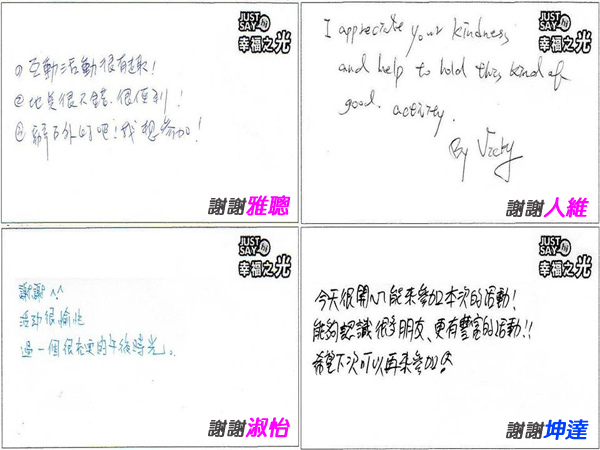 JUST
SAY
幸福之光
①互動活動很有趣!
②地點很不錯、很便利!
③辦戶外的吧!我想參加!
謝謝雅聰
JUST
SAY
幸福之光
I appreciate your kindness
and help to hold this kind of
good activity.
By Vicky
謝謝人維
JUST
SAY
幸福之光
謝謝^^
活動很愉快
過一個很充實的午後時光。
謝謝淑怡
JUST
SAY
幸福之光
今天很開心能來參加本次的活動!
能夠認識很多朋友、更有豐富的活動!!
希望下次可以再來參加
謝謝坤達